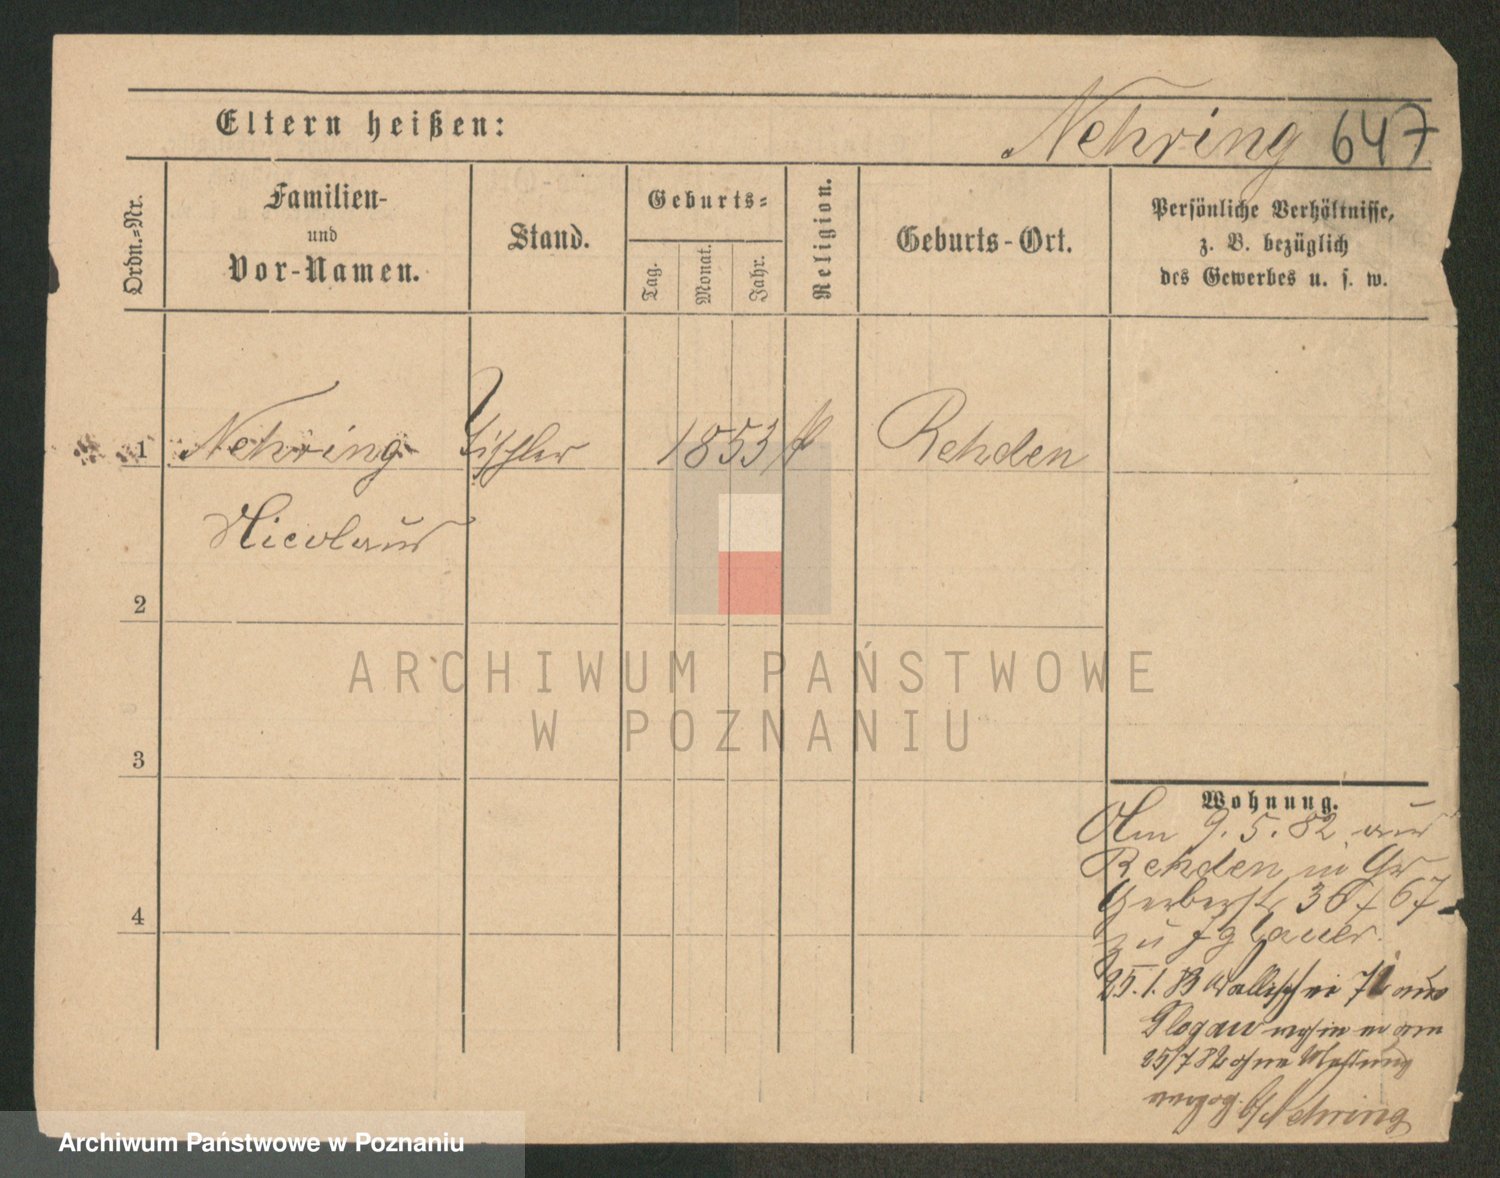 Eltern heißen:
Nehring 647
Ordn.=Nr.
Familien-
und
Vor-Namen.
Stand.
Geburts=
Tag.
Monat.
Jahr.
Religion.
Geburts-Ort.
Persönliche Verhältnisse,
z. B. bezüglich
des Gewerbes u. s. w.
1 Nehring Tischler 1853 k Rehden
Nicolaus
2
3
4
ARCHIWUM PAŃSTWOWE
W POZNANIU
Wohnung.
Am 9.5.82 aus
Rehden in Gr
Gerberst. 36 / 67
zu
25.1.83 Wallischei 71 aus
Glogau am
25/7 82 ohne Meldung
verzog. b/Nehring
Archiwum Państwowe w Poznaniu